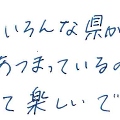 いろんな県が
あつまっているの
て楽しいで